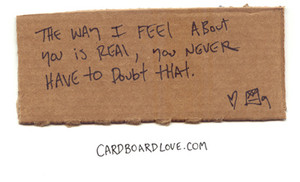 THE WAY I FEEL ABOUT
you is REAL, you NEVER
HAVE to Doubt tHAt.
CARDBOARDLOVE.COM